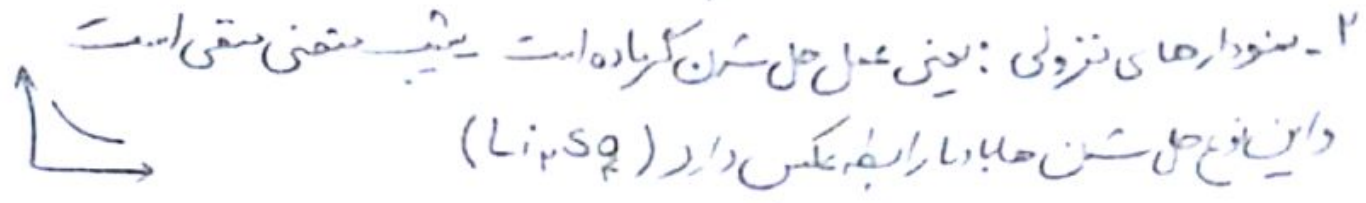 ۲- نمودارهای نزولی : یعنی عمل حل شدن گرماده است شیب منحنی منفی است
و این نوع حل شدن ها با دما رابطه عکس دارد (Li۲SO۴)